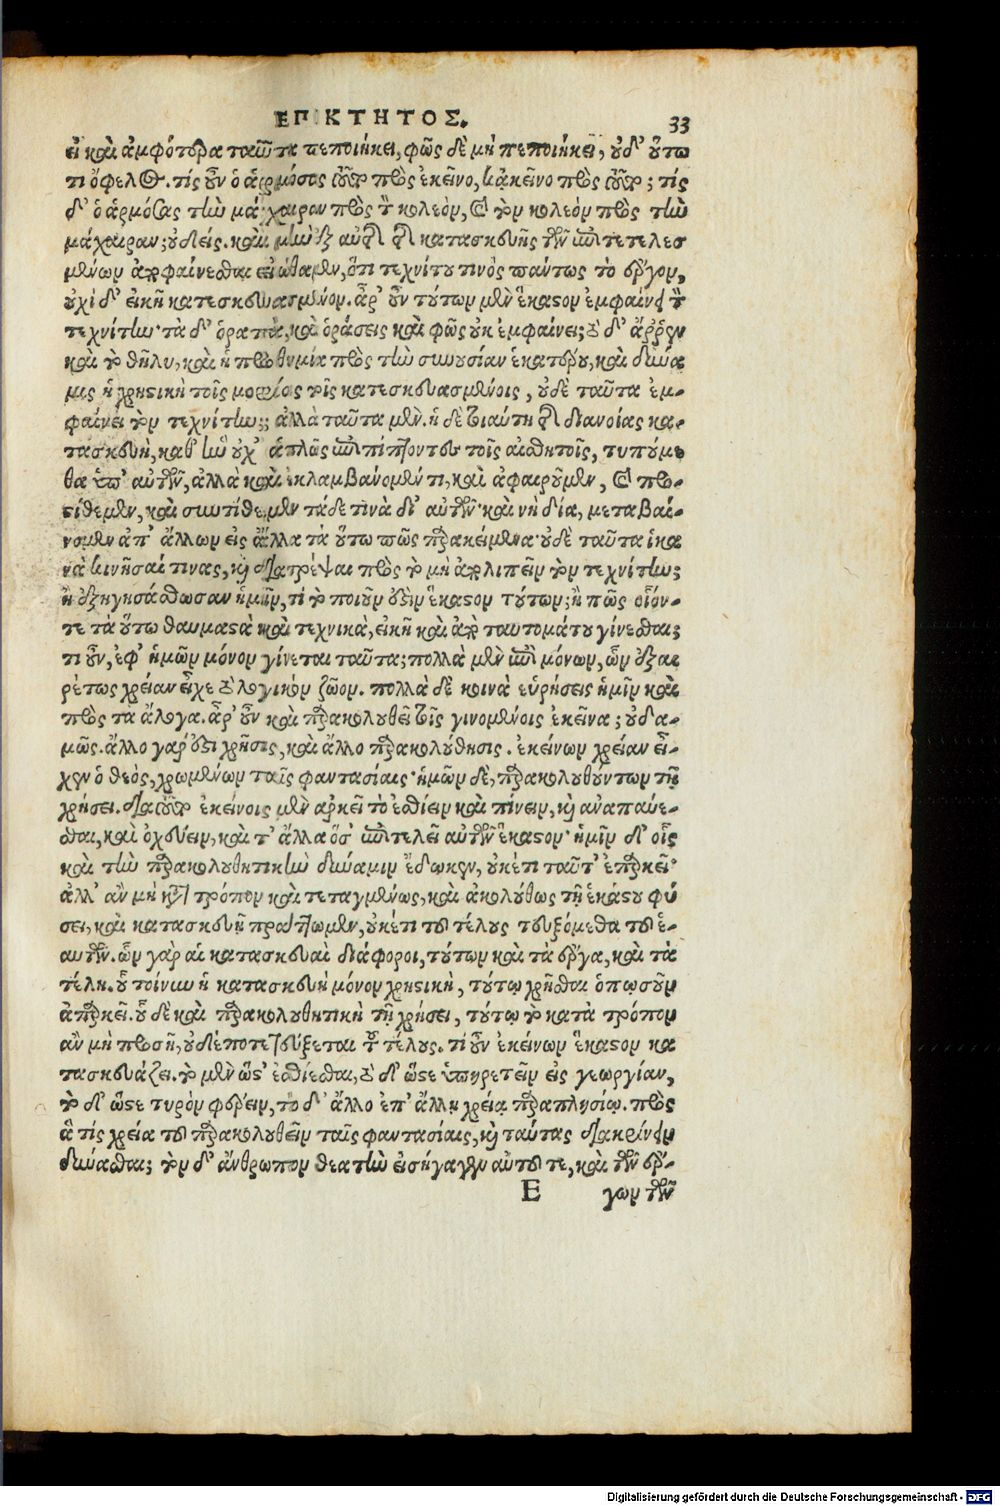 ΕΠΙΚΤΗΤΟΣ. 33
εἰ καὶ ἀμφότερα ταῦτα πεποιήκει, φῶς δὲ μὴ πεποιήκει, οὐδ' οὕτω
τι ὄφελος. τίς οὖν ὁ ἁρμόσας τοῦτο πρὸς ἐκεῖνο, κἀκεῖνο πρὸς τοῦτο; τίς
δ' ὁ ἁρμόσας τὴν μάχαιραν πρὸς τὸν κολεὸν, καὶ τὸν κολεὸν πρὸς τὴν
μάχαιραν; οὐδείς. καὶ μὴν ἐξ αὐτῆς τῆς κατασκευῆς τῶν ἐπιτετελεσ
μένων ἀποφαίνεσθαι εἰώθαμεν, ὅτι τεχνίτου τινὸς πάντως τὸ ἔργον,
οὐχὶ δ' εἰκῆ κατεσκευασμένον. ἆρ' οὖν τούτων μὲν ἕκαστον ἐμφαίνει τὸν
τεχνίτην· τὰ δ' ὁρατὰ, καὶ ὁράσεις καὶ φῶς οὐκ ἐμφαίνει; τὸ δ' ἄρρεν
καὶ τὸ θῆλυ, καὶ ἡ προθυμία πρὸς τὴν συνουσίαν ἑκατέρου, καὶ δύνα
μις ἡ χρηστικὴ τοῖς μορίοις τοῖς κατεσκευασμένοις, οὐδὲ ταῦτα ἐμ-
φαίνει τὸν τεχνίτην; ἀλλὰ ταῦτα μέν. ἡ δὲ τοιαύτη τῆς διανοίας κα-
τασκευὴ, καθ' ἣν οὐχ' ἁπλῶς ἐπιπίπτοντες τοῖς αἰσθητοῖς, τυπούμε
θα ὑπ' αὐτῶν, ἀλλὰ καὶ ἐκλαμβάνομέν τι, καὶ ἀφαιροῦμεν, καὶ προσ-
τίθεμεν, καὶ συντίθεμεν τάδε τινὰ δι' αὐτῶν· καὶ νὴ δία, μεταβαί-
νομεν ἀπ' ἄλλων εἰς ἄλλα τὰ οὕτω πως παρακείμενα· οὐδὲ ταῦτα ἱκα
νὰ κινῆσαί τινας, καὶ διατρέψαι πρὸς τὸ μὴ ἀπολιπεῖν τὸν τεχνίτην;
ἢ ἐξηγησάσθωσαν ἡμῖν, τί τὸ ποιοῦν ἐστιν ἕκαστον τούτων; ἢ πῶς οἷόν-
τε τὰ οὕτω θαυμαστὰ καὶ τεχνικὰ, εἰκῆ καὶ ἀπὸ ταυτομάτου γίνεσθαι;
τι οὖν, ἐφ' ἡμῶν μόνον γίνεται ταῦτα; πολλὰ μὲν ἐπὶ μόνων, ὧν ἐξαι
ρέτως χρείαν εἶχε τὸ λογικὸν ζῶον. πολλὰ δὲ κοινὰ εὑρήσεις ἡμῖν καὶ
πρὸς τὰ ἄλογα. ἆρ' οὖν καὶ παρακολουθεῖ τοῖς γινομένοις ἐκεῖνα; οὐδα-
μῶς. ἄλλο γάρ ἐστι χρῆσις, καὶ ἄλλο παρακολούθησις. ἐκείνων χρείαν εἶ-
χεν ὁ θεὸς, χρωμένων ταῖς φαντασίαις· ἡμῶν δὲ, παρακολουθούντων τῇ
χρήσει. διὰ τοῦτο ἐκείνοις μὲν ἀρκεῖ τὸ ἐσθίειν καὶ πίνειν, καὶ ἀναπαύε-
σθαι, καὶ ὀχεύειν, καὶ τ' ἄλλα ὅσ' ἐπιτελεῖ αὐτῶν ἕκαστον· ἡμῖν δ' οἷς
καὶ τὴν παρακολουθητικὴν δύναμιν ἔδωκεν, οὐκέτι ταῦτ' ἐπαρκεῖ·
ἀλλ' ἂν μὴ κατὰ τρόπον καὶ τεταγμένως, καὶ ἀκολούθως τῇ ἑκάστου φύ
σει, καὶ κατασκευῇ πράττωμεν, οὐκέτι τοῦ τέλους τευξόμεθα τοῦ ἑ-
αυτῶν. ὧν γὰρ αἱ κατασκευαὶ διάφοροι, τούτων καὶ τὰ ἔργα, καὶ τὰ
τέλη. οὗ τοίνυν ἡ κατασκευὴ μόνον χρηστικὴ, τούτῳ χρῆσθαι ὁπωσοῦν
ἀπαρκεῖ. οὗ δὲ καὶ παρακολουθητικὴ τῇ χρήσει, τούτῳ τὸ κατὰ τρόπον
ἂν μὴ προσῇ, οὐδέποτε τεύξεται τοῦ τέλους. τί οὖν ἐκείνων ἕκαστον κα
τασκευάζει. τὸ μὲν ὥστ' ἐσθίεσθαι, τὸ δ' ὥστε ὑπηρετεῖν εἰς γεωργίαν,
τὸ δ' ὥστε τυρὸν φέρειν, τὸ δ' ἄλλο ἐπ' ἄλλῃ χρείᾳ παραπλησίῳ. πρὸς
ἃ τίς χρεία τοῦ παρακολουθεῖν ταῖς φαντασίαις, καὶ ταύτας διακρίνειν
δύνασθαι; τὸν δ' ἄνθρωπον θεατὴν εἰσήγαγεν αὐτοῦ τε, καὶ τῶν ἔρ-
E γων τῶν
Digitalisierung gefördert durch die Deutsche Forschungsgemeinschaft - DFG